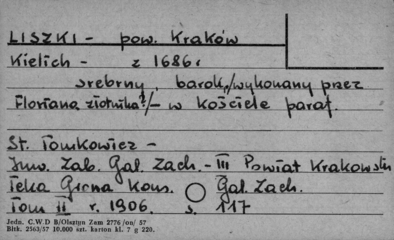 LISZKI - pow. Kraków
Kielich - z 1686r.
srebrny, barok, /wykonany przez
Floriana złotnika?/ - w kościele paraf.
St. Tomkowicz -
Inw. Zab. Gal. Zach. - III Powiat Krakowski
Teka Grona Kons. Gal. Zach.
Tom II r. 1906. s. 117
Jedn. C.W.D B/Olsztyn Zam 2776 /on/ 57
Błtk. 2563/57 10.000 szt. karton kl. 7 g 220.